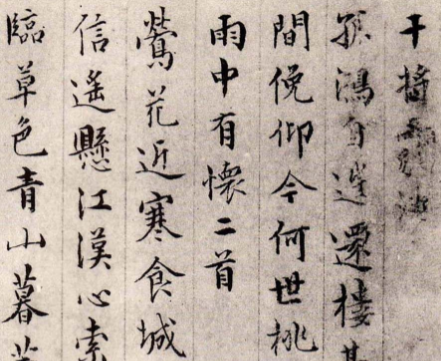 干將
孤鴻自迷還樓
間俛仰今何世桃
雨中有懷二首
鶯花近寒食城
信遥懸江漢心索
臨草色青山暮